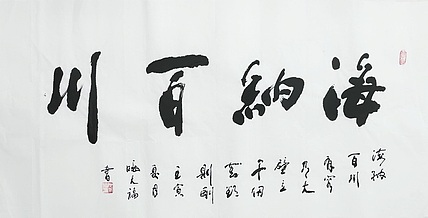 海納百川
海納
百川
有容
乃大
壁立
千仞
無欲
則剛
壬寅
夏月